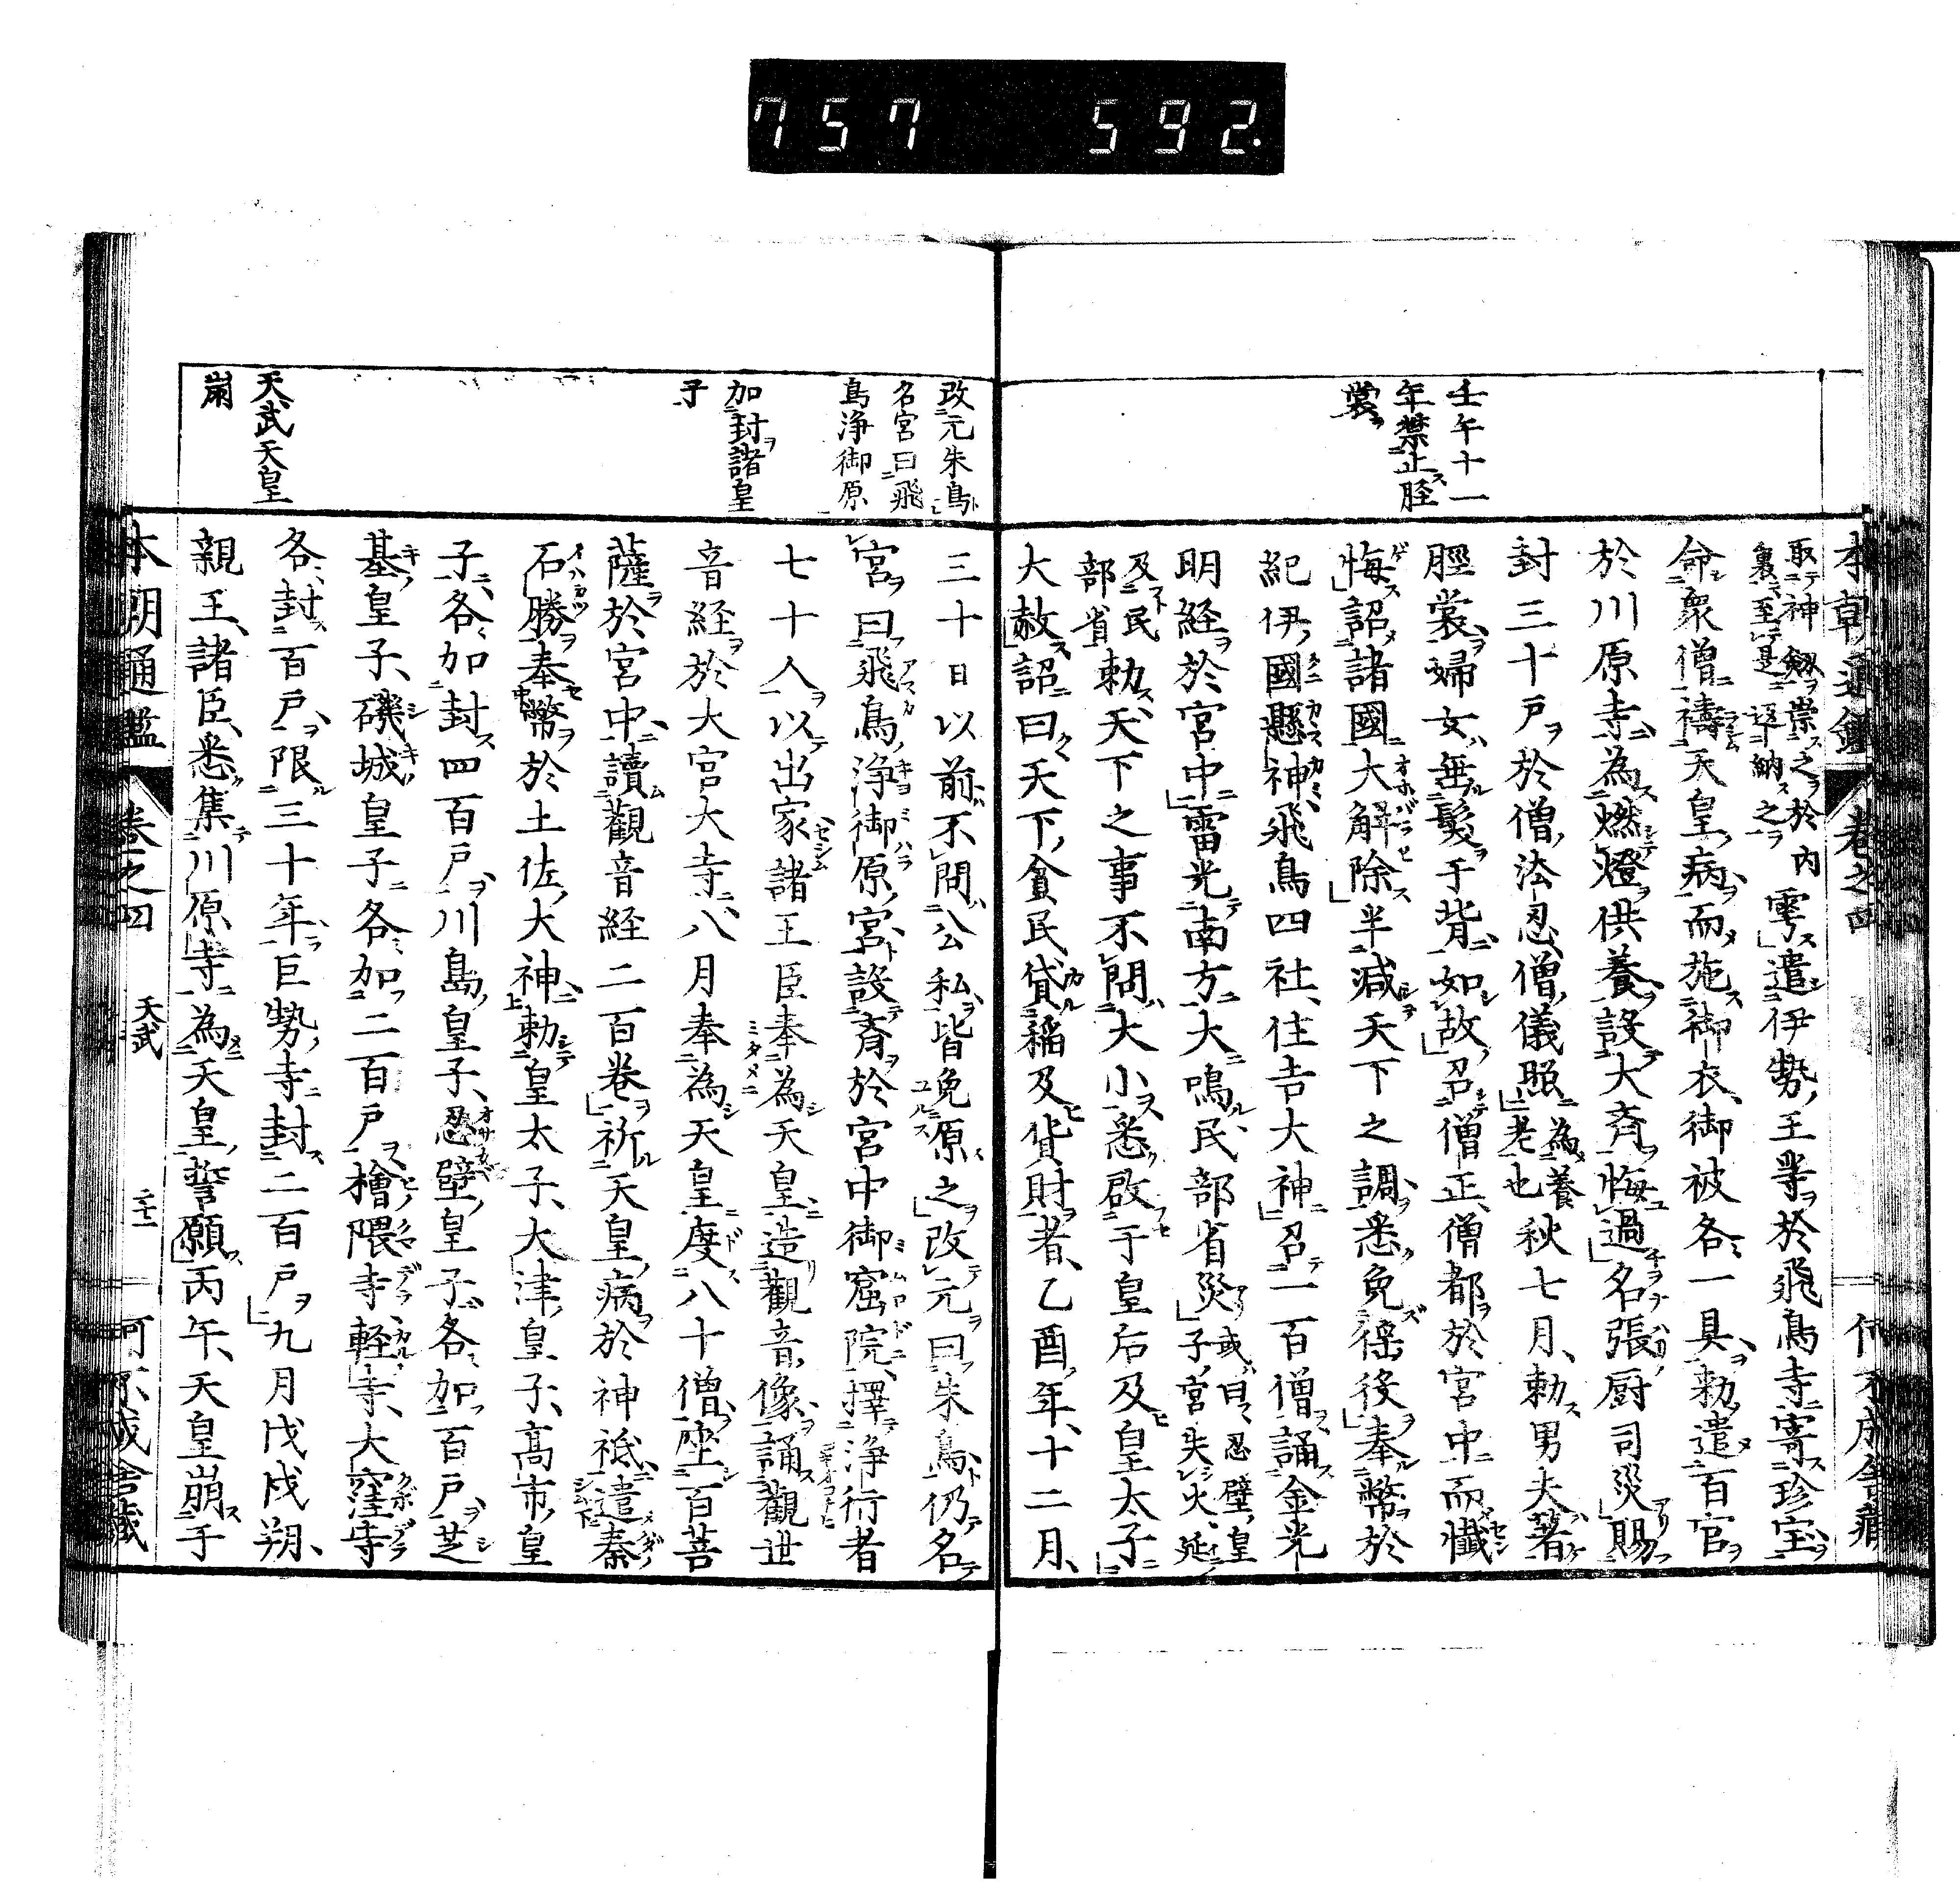 757 592.
本朝通鑑 卷之四
壬午十一
年禁止脛
裳
取神劔崇之於內
裏至是返納之
雩遣伊勢王等於飛鳥寺寄珍宝
命衆僧禱天皇病而施御衣御被各一具勅遣百官
於川原寺為燃燈供養設大斉悔過名張厨司災賜
封三十戸於僧法忍僧儀照為養老也秋七月勅男夫著
脛裳婦女垂髮于背如故召僧正僧都於宮中而懺
悔詔諸國大解除半減天下之調悉免徭役奉幣於
紀伊國懸神飛鳥四社住吉大神召一百僧誦金光
明経於宮中雷光南方大鳴民部省災或曰忍壁皇子宮失火延
及民部省勅天下之事不問大小悉啟于皇后及皇太子
大赦詔曰天下貧民貸稲及貨財者乙酉年十二月
改元朱鳥
名宮曰飛
鳥浄御原
加封諸皇
子
天武天皇
崩
三十日以前不問公私皆免原之改元曰朱鳥仍名
宮曰飛鳥浄御原宮設斉於宮中御窟院擇浄行者
七十人以出家諸王臣奉為天皇造觀音像誦觀世
音経於大官大寺八月奉為天皇度八十僧坐百菩
薩於宮中讀觀音経二百卷祈天皇病於神祗遣秦
石勝奉幣於土佐大神勅皇太子大津皇子高市皇
子各加封四百戸川島皇子忍壁皇子各加百戸芝
基皇子磯城皇子各加二百戸檜隈寺軽寺大窪寺
各封百戸限三十年巨勢寺封二百戸九月戊戌朔
親王諸臣悉集川原寺為天皇誓願丙午天皇崩于
本朝通鑑 卷之四 天武